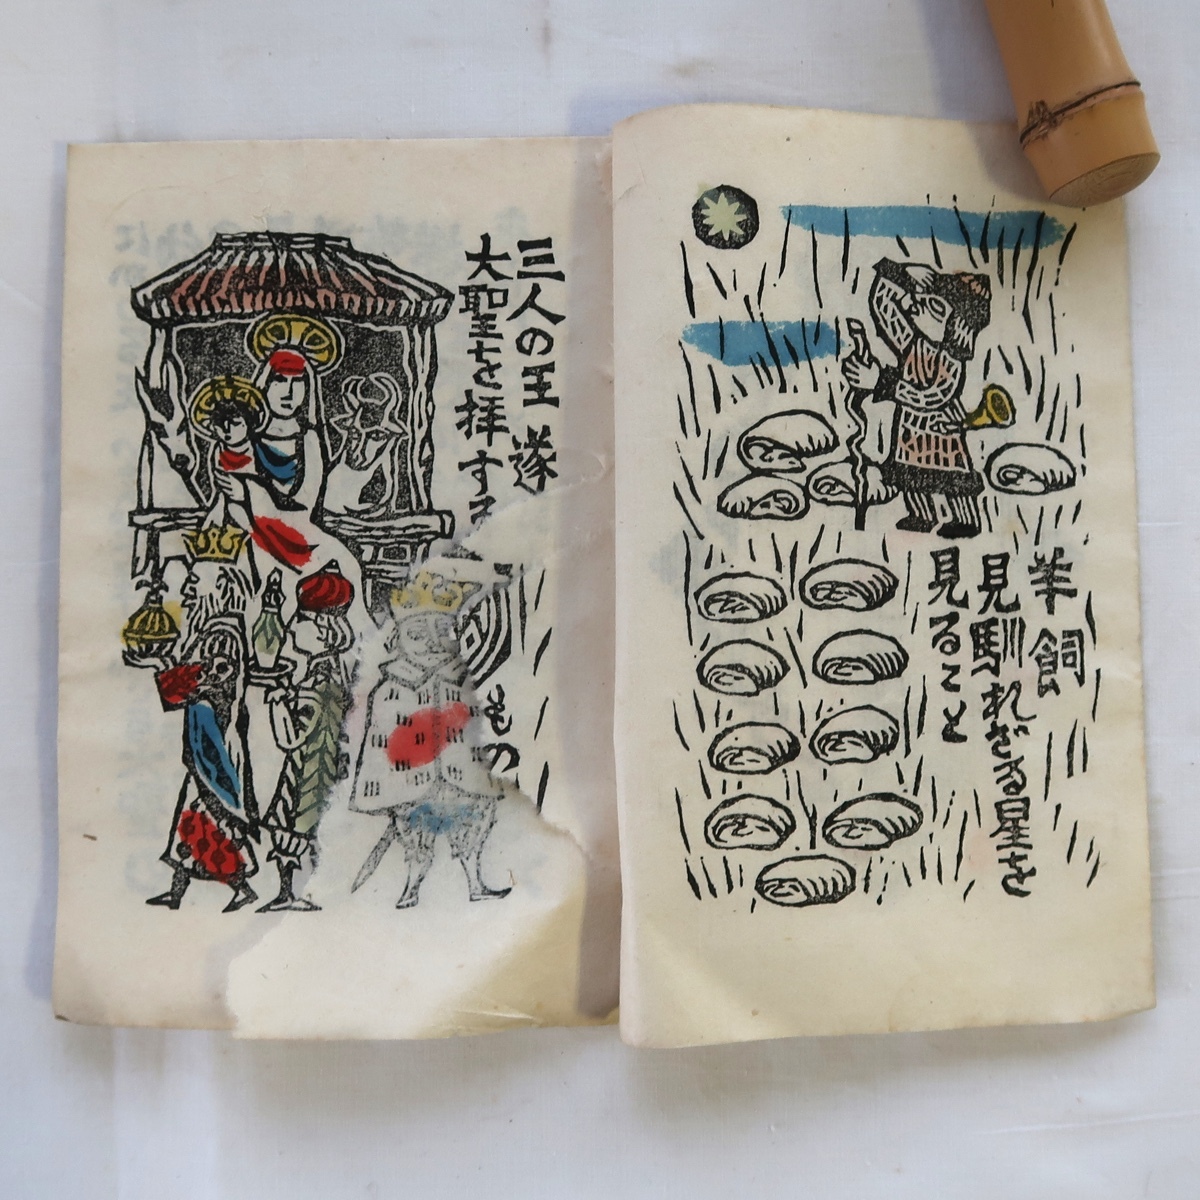 羊飼
見馴れざる星を
見ること
三人の王 遂
大聖を拝する
もの